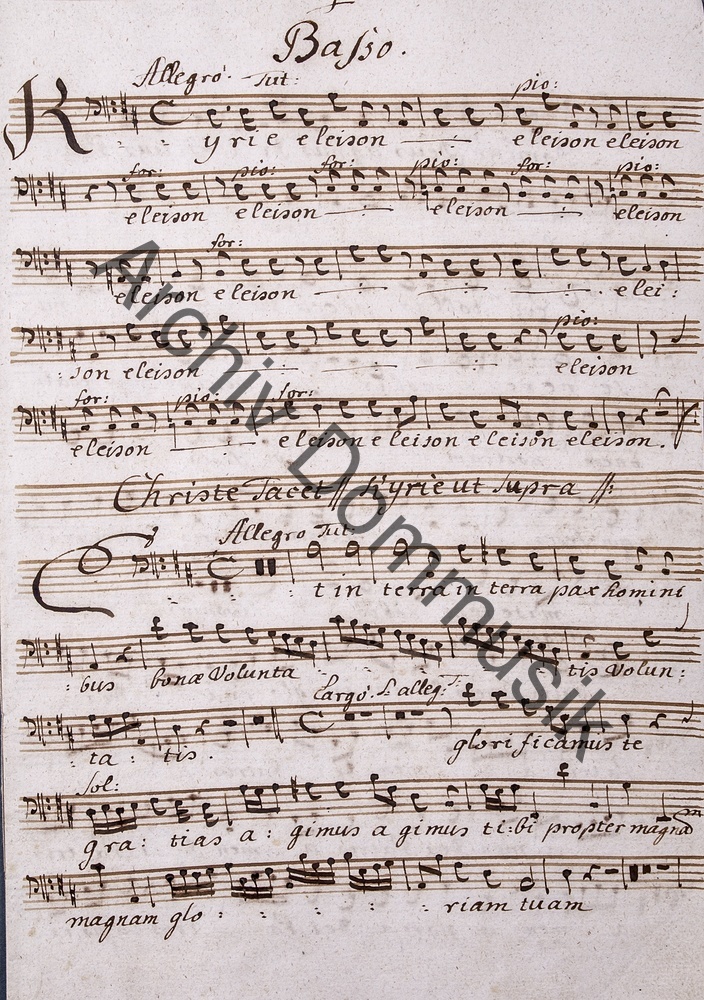 Basso.
Allegro. Tut: pio:
Kyrie eleison eleison eleison
for: pio: for: pio: for: pio:
eleison eleison eleison eleison
for:
eleison eleison elei:
pio:
:son eleison eleison
for: pio: for:
eleison eleison eleison eleison eleison.
Christe Tacet // Kyrie ut Supra //:
Allegro Tut:
Et in terra in terra pax homini
:bus bonæ Volunta tis Volun:
Largo. allegº
:ta: tis. glorificamus te
Sol:
gra: tias a: gimus a gimus ti:bi propter magnā
magnam glo : : : : riam tuam
Archiv Dommusik